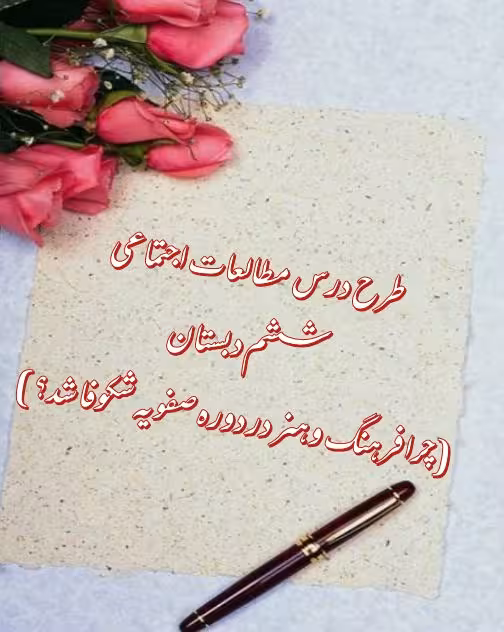 طرح درس مطالعات اجتماعی
ششم دبستان
(چرا فرهنگ و هنر در دوره صفویه شکوفا شد؟)